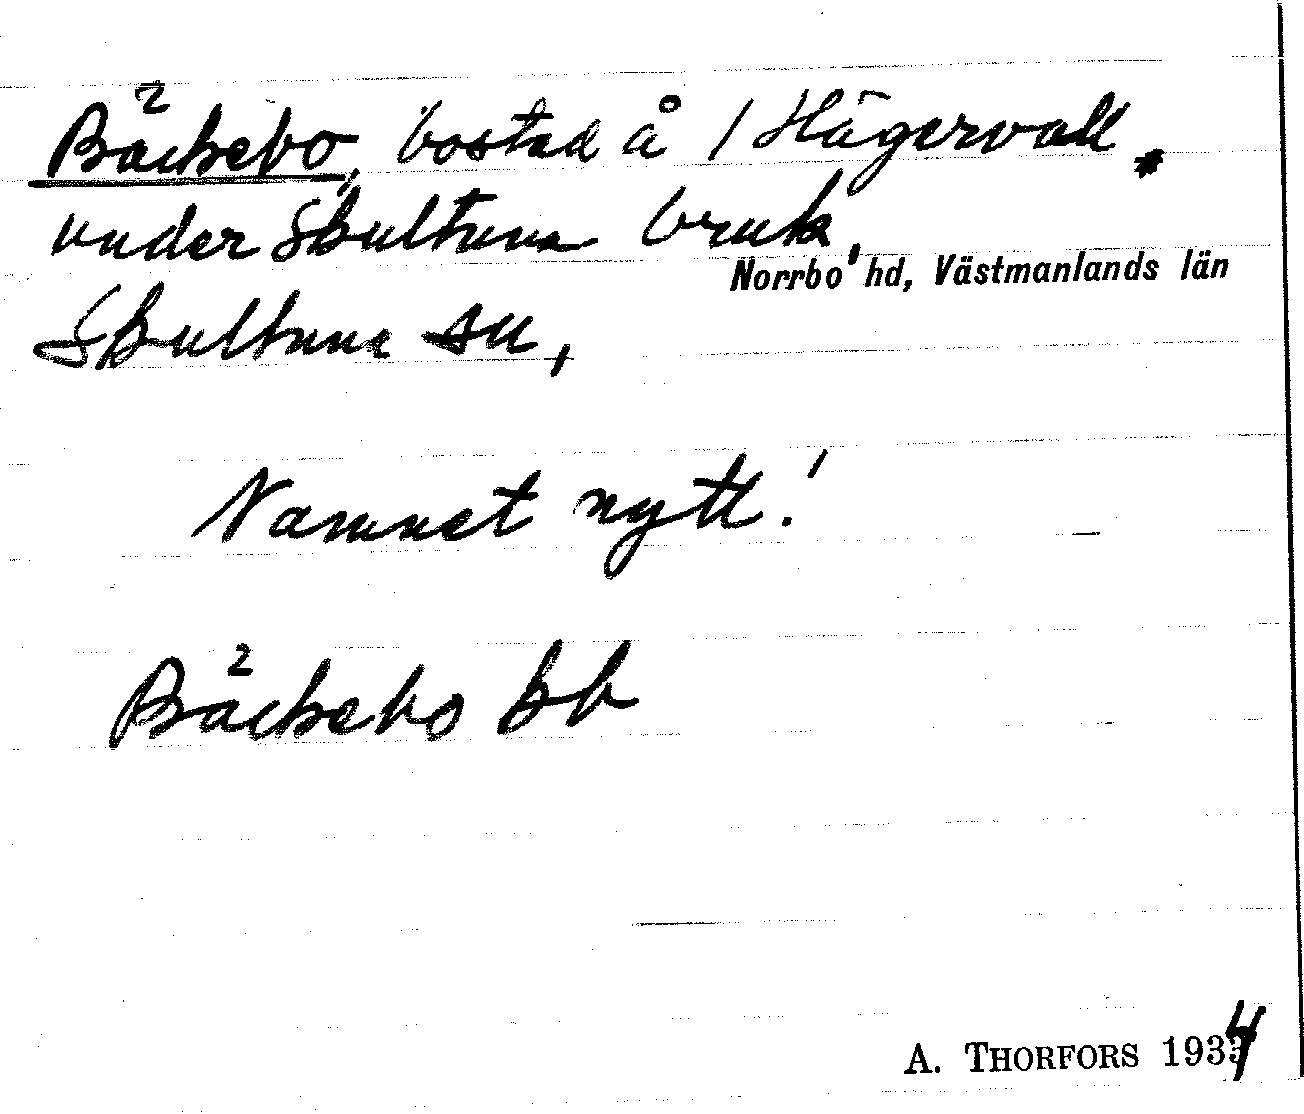 Bäckebo, bostad å 1 Hägervall
under Skultuna bruk,
Norrbo hd, Västmanlands län
Skultuna sn,
Namnet nytt!
Bäckebo bb
A. THORFORS 1934